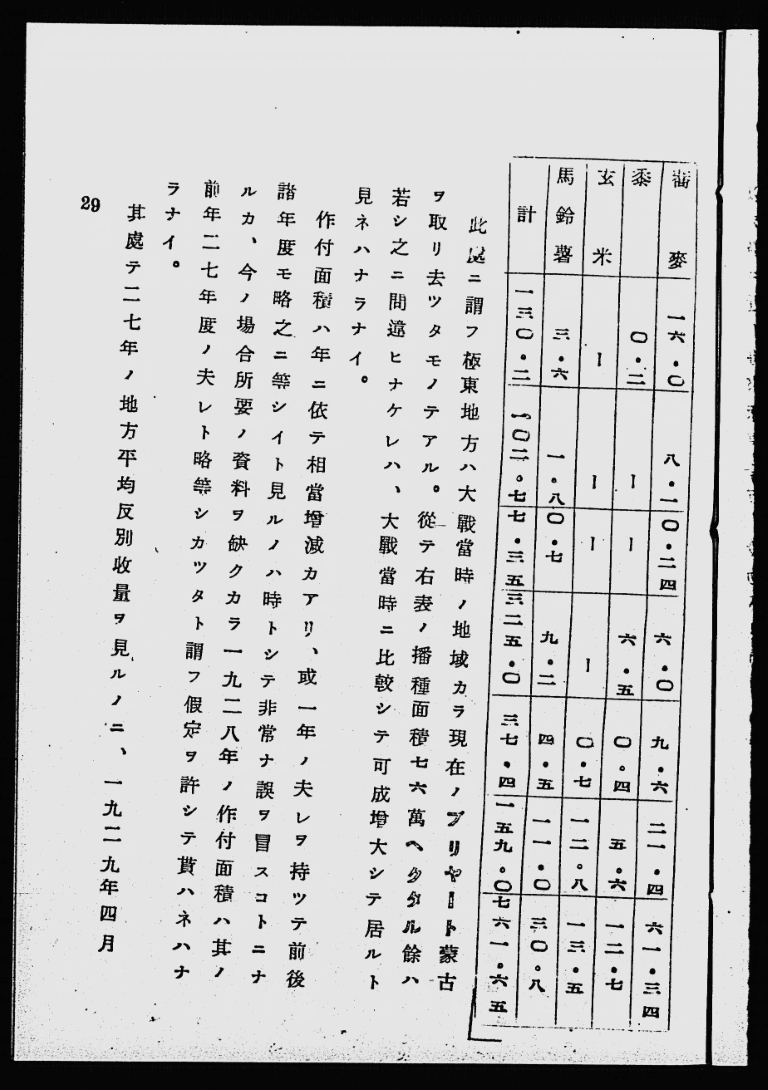 蕎麥 一六・〇 八・一 〇・二四 六・〇 九・六 二一・四 六一・三四
黍 〇・二 ー ー 六・五 〇・四 五・六 一二・七
玄米 ー ー ー ー 〇・七 一二・八 一三・五
馬鈴薯 三・六 一・八 〇・七 九・二 四・五 一一・〇 三〇・八
計 一三〇・二 一〇二・七 七・三五 三二五・〇 三七・四 一五九・〇 七六一・六五
此處ニ謂フ極東地方ハ大戰當時ノ地域カラ現在ノブリヤート蒙古
ヲ取リ去ツタモノテアル。從テ右表ノ播種面積七六萬ヘクタル餘ハ
若シ之ニ間違ヒナケレハ、大戰當時ニ比較シテ可成增大シテ居ルト
見ネハナラナイ。
作付面積ハ年ニ依テ相當增減カアリ、或一年ノ夫レヲ持ツテ前後
諸年度モ略之ニ等シイト見ルノハ時トシテ非常ナ誤ヲ冒スコトニナ
ルカ、今ノ場合所要ノ資料ヲ缺クカラ一九二八年ノ作付面積ハ其ノ
前年二七年度ノ夫レト略等シカツタト謂フ假定ヲ許シテ貰ハネハナ
ラナイ。
其處テ二七年ノ地方平均反別收量ヲ見ルノニ、一九二九年四月
29